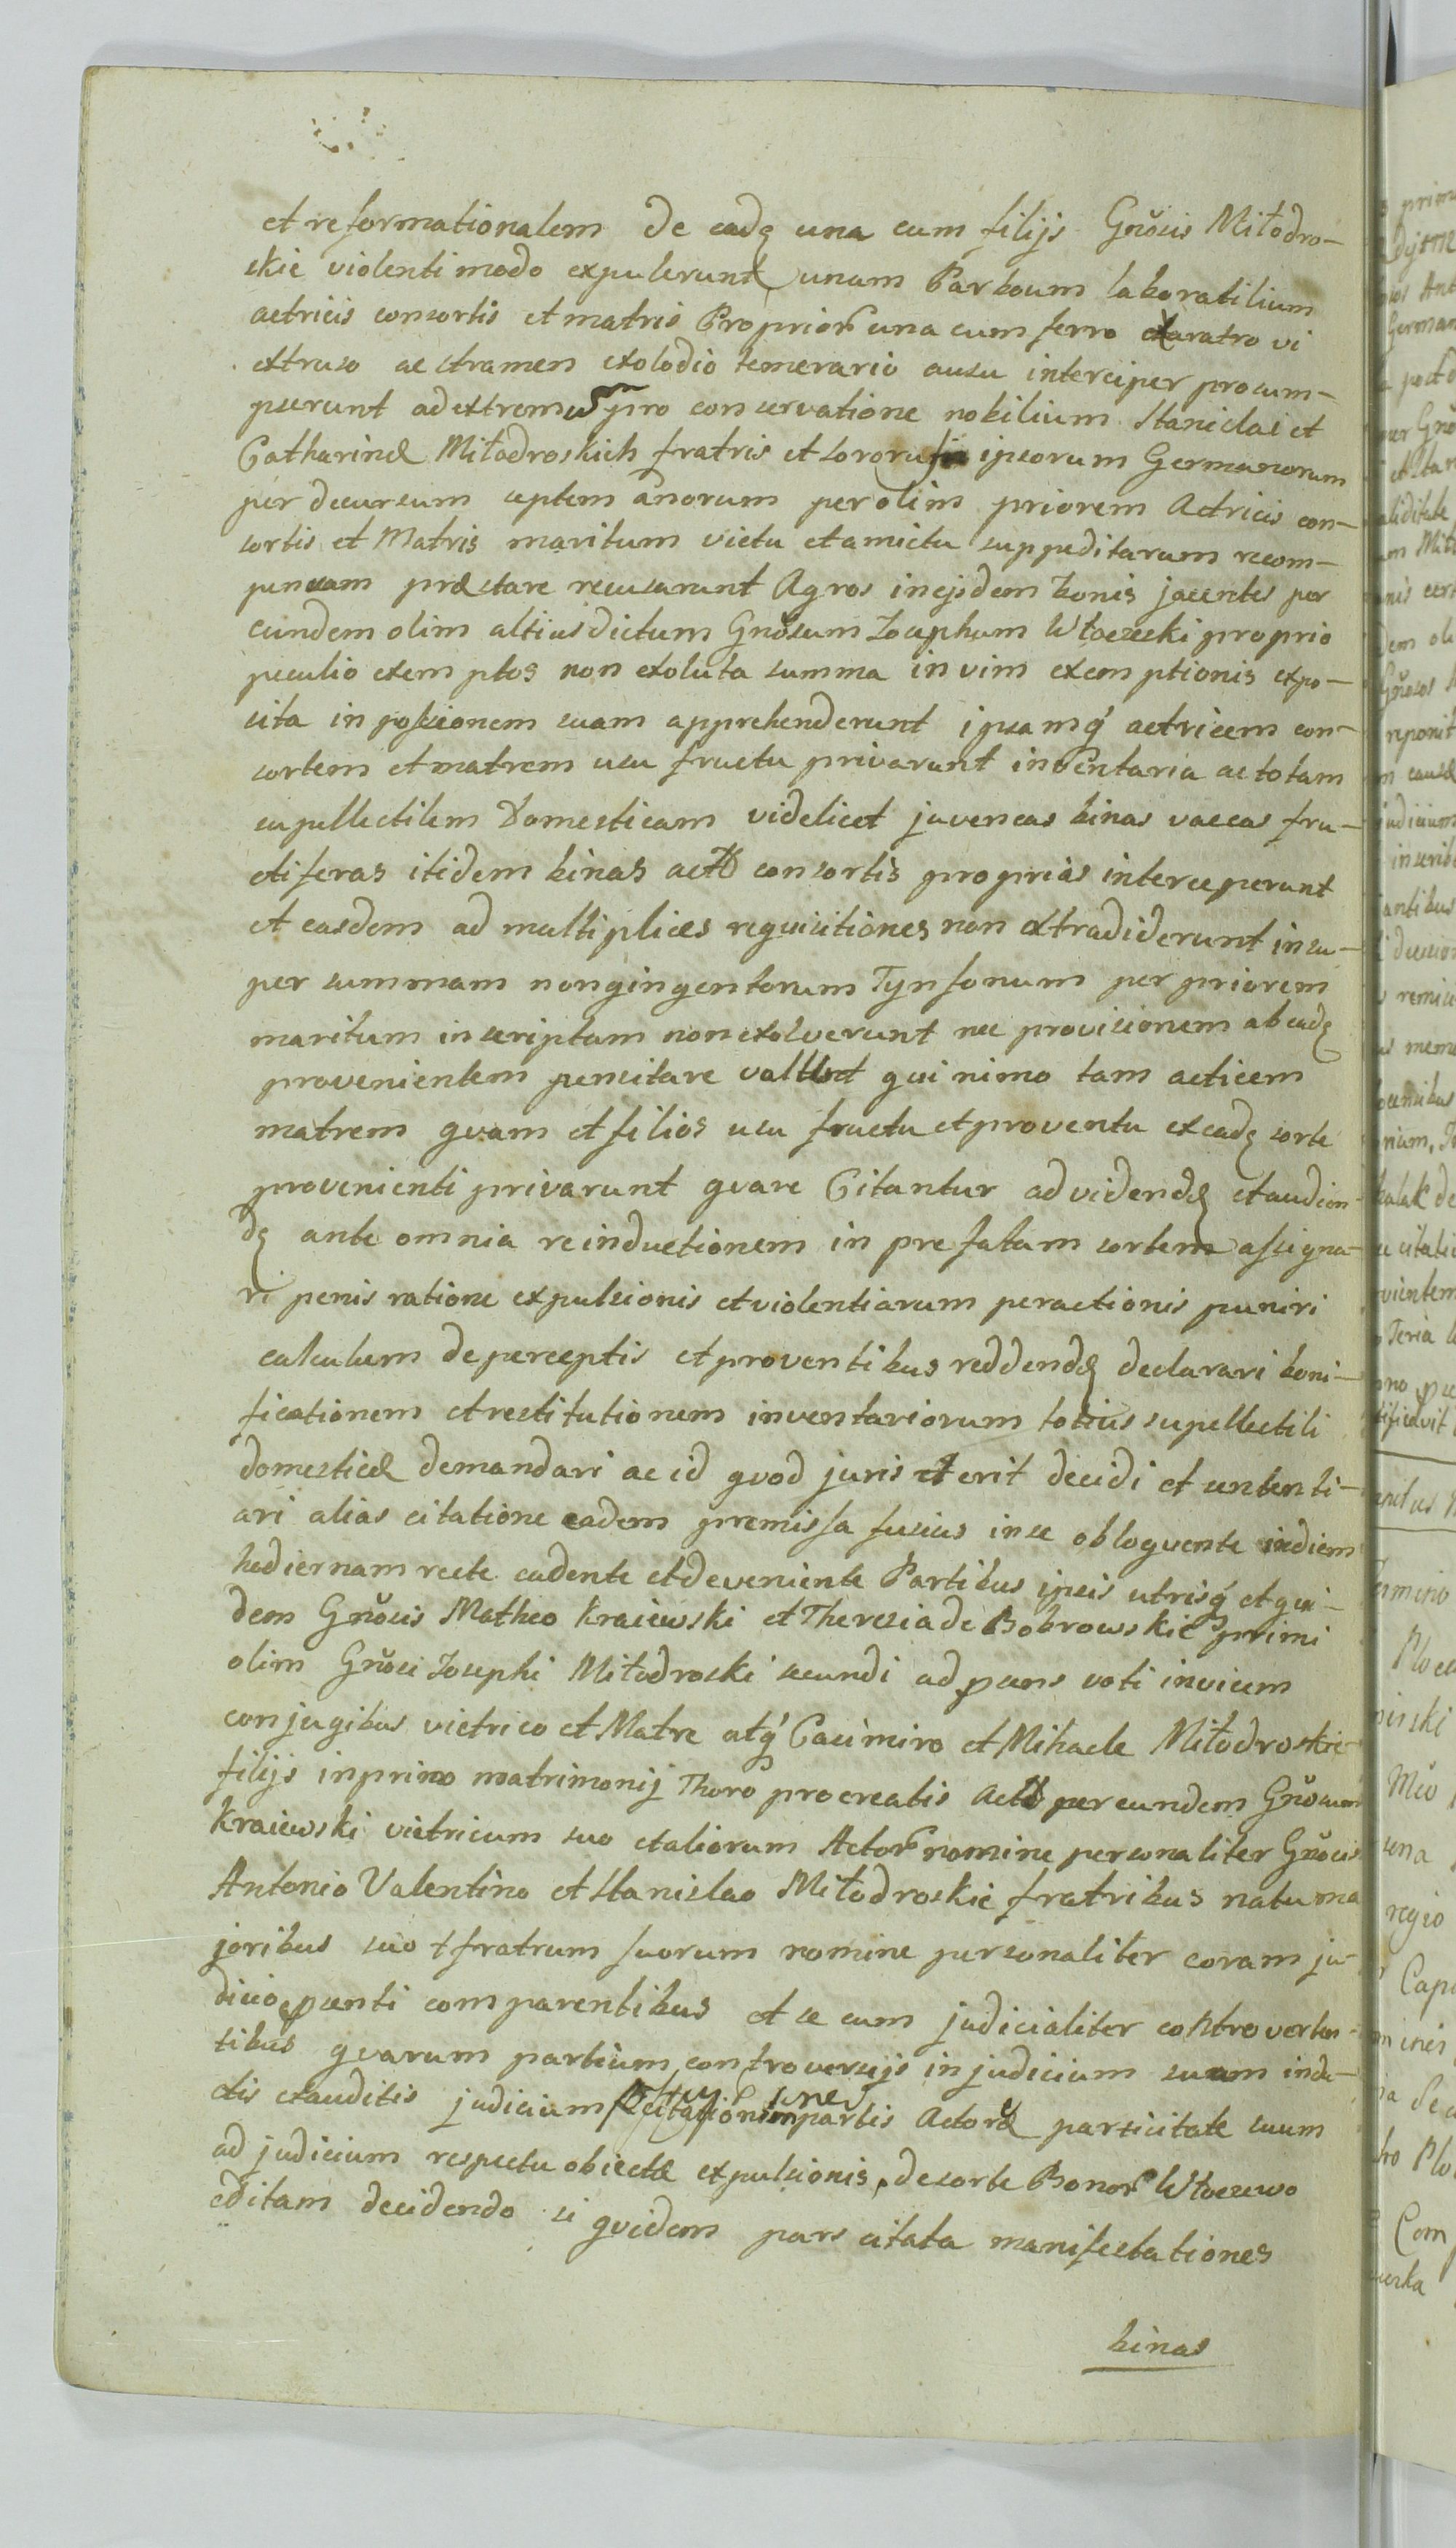 et reformationalem de eadę una cum filijs Gnosis Miłodro-
skie violenti modo expulerunt unam Par boum laboratilium
actricis consortis et matris Proprior una cum ferro exaratro vi
extruso ac stramen exolodio temerario ausu interciper prosum-
pserunt ad extremum pro conservatione nobilium Stanislai et
Catharinæ Miłodroskich fratris et sororum ipsorum Germanorum
per decursum septem anorum per olim priorem Actricis con-
sortis et Matris maritum victu et amictu suppeditarum recom-
pensam præstare recusarunt Agros in ejsdem bonis jacentes per
eundem olim altius dictum Gnosum Josephum Włoczecki proprio
peculio exemptos non exoluta summa in vim exemptionis expo-
sita in possesionem suam apprehenderunt ipsamq actricem con-
sortem et matrem usu fructu privarunt inventaria ac totam
supellectilem Domesticam videlicet juvencas binas vaccas fru-
ctiferas itidem binas consortis proprias interceperunt
et easdem ad multiplices requisitiones non extradiderunt insu-
per summam nongingentorum Tynfonum per priorem
maritum inscriptam non exolverunt nec provisionem ab eadę
provenientem pensitare quinimo tam acticem
matrem quam et filios usu fructu et proventu ex eadę sorte
provenienti privarunt quare Citantur ad videndę et audien-
dę ante omnia reinductionem in prefatam sortem assigna-
ri penis ratione expulsionis et violentiarum peractionis puniri
calculum de perceptis et proventibus reddendę declarari boni-
ficationem et restitutionem inventariorum totius supellectili
domesticæ demandari ac id quod juris erit decidi et sententi-
ari alias citatione eadem premissa fusius in se obloquente in diem
hodiernam recte cadente et deveniente Partibus ipsis utrisq et qui-
dem Gnosis Matheo Kraiewski et Theresia de Bobrowskie primi
olim Gnosi Josephi Miłodroski secundi ad psens voti invicem
conjugibus vietrico et Matre atq Casimiro et Mihaele Miłodroskie
filijs in primo matrimonij Thoro procreatis per eundem Gnosum
Kraiewski vietricum suo et aliorum Actor nomine personaliter Gnosis
Antonio Valentino et Stanislao Miłodroskie fratribus natu ma
joribus suo & fratrum suorum nomine personaliter coram ju-
dicio psenti comparentibus et se cum judicialiter controverten-
tibus quarum partium controversijs in judicium suum indu-
ctis exauditis judicium partis Actoræ parsicitatæ suum
ad judicium respectu obiectæ expulsionis de sorte Bonor Włoczewo
editam decidendo si quidem pars citata manifestationes
binas